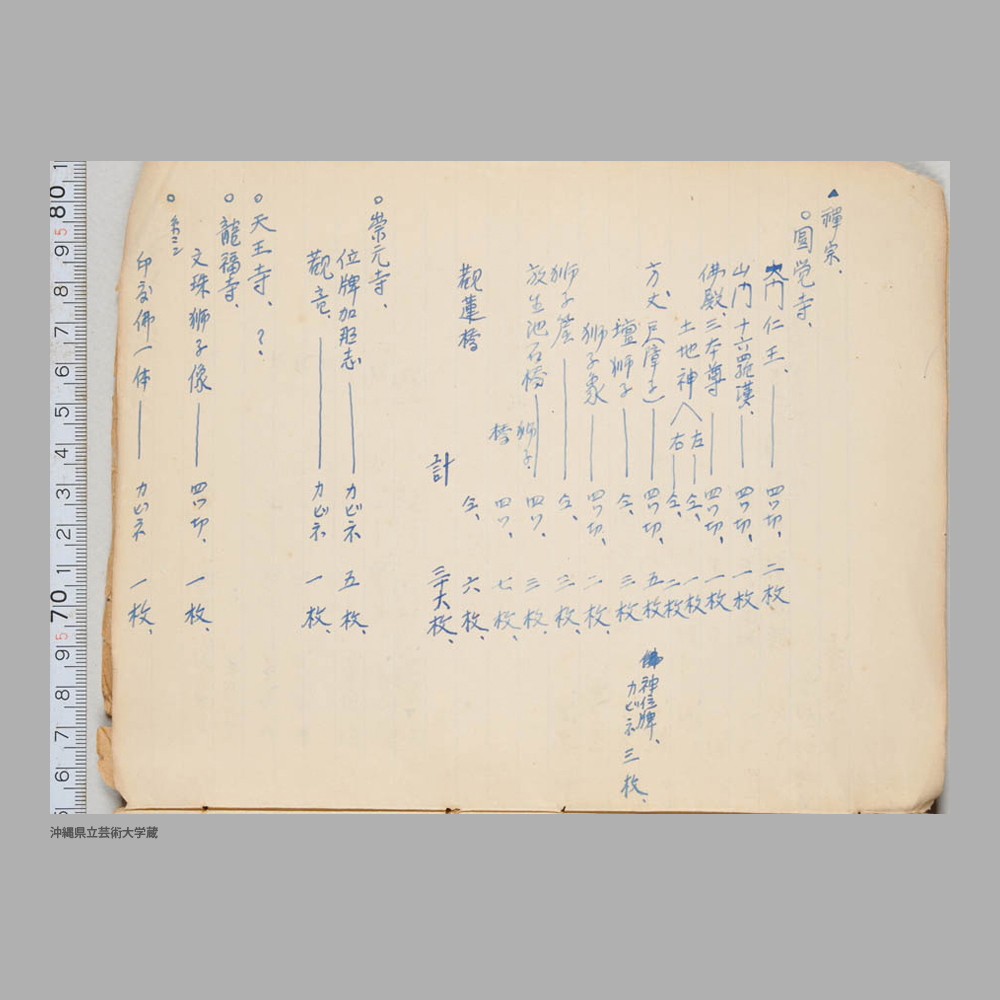 ▲禪宗、
○圓覚寺、
仁王、——四ツ切、二枚、
山門 十六羅漢、——四ツ切、一枚、
佛殿、三本尊——四ツ切、一枚、
土地神 左——仝、一枚、
右——仝、二枚、
方丈、——四ツ切、五枚、
壇獅子——仝、三枚、
獅子象——四ツ切、二枚、
獅子窟——仝、三枚、
放生池石橋 獅子、四ツ、三枚、
橋 四ツ、七枚、
觀蓮橋 仝、六枚、
計 三十六枚、
佛神位牌、
カビネ 三枚、
○崇元寺、
位牌加那志——カビネ 五枚、
觀音、——カビネ 一枚、
○天王寺、?、
○龍福寺、
文珠獅子像——四ツ切、一枚、
○
印度佛一体——カビネ 一枚、
沖縄県立芸術大学蔵